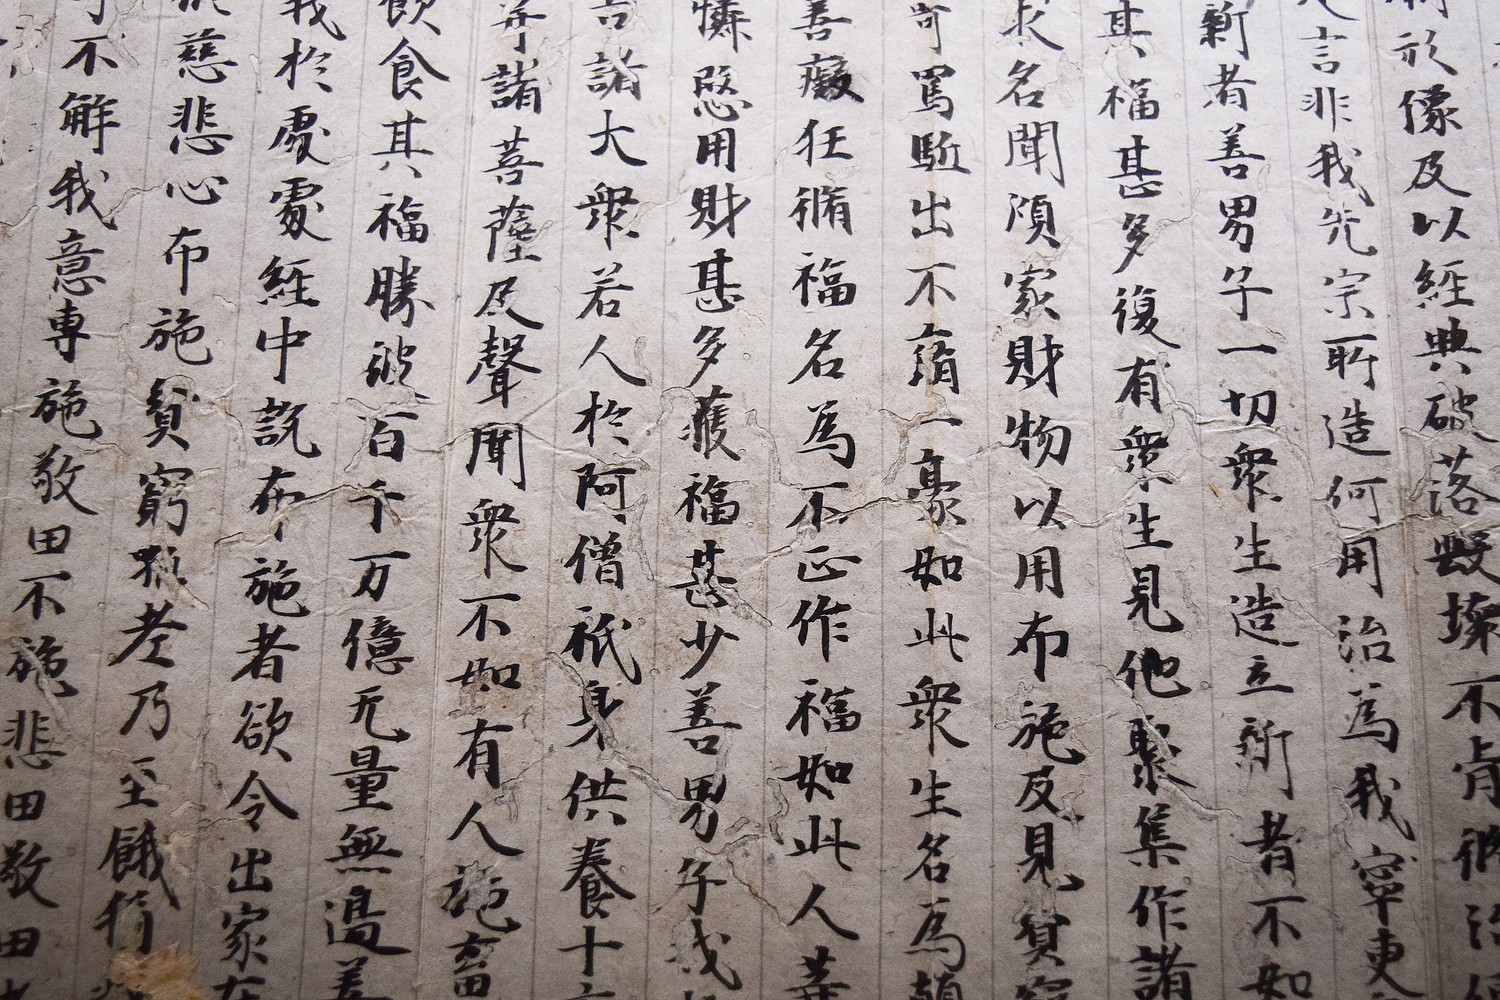 形像及以經典破落毀壞不肯脩治
言非我先宗所造何用治為我寧更
新者善男子一切衆生造立新者不如
其福甚多復有衆生見他聚集作諸
求名聞傾家財物以用布施及見貧窮
罵駈出不脩一豪如此衆生名為顛
善癡狂脩福名為不正作福如此人等
憐愍用財甚多獲福甚少善男子我
告諸大衆若人於阿僧祇身供養十
并諸菩薩及聲聞衆不如有人施畜
飲食其福勝彼百千万億无量無邊善
我於處處經中說布施者欲令出家在
慈悲心布施貧窮孤老乃至餓狗
不解我意專施敬田不施悲田敬田